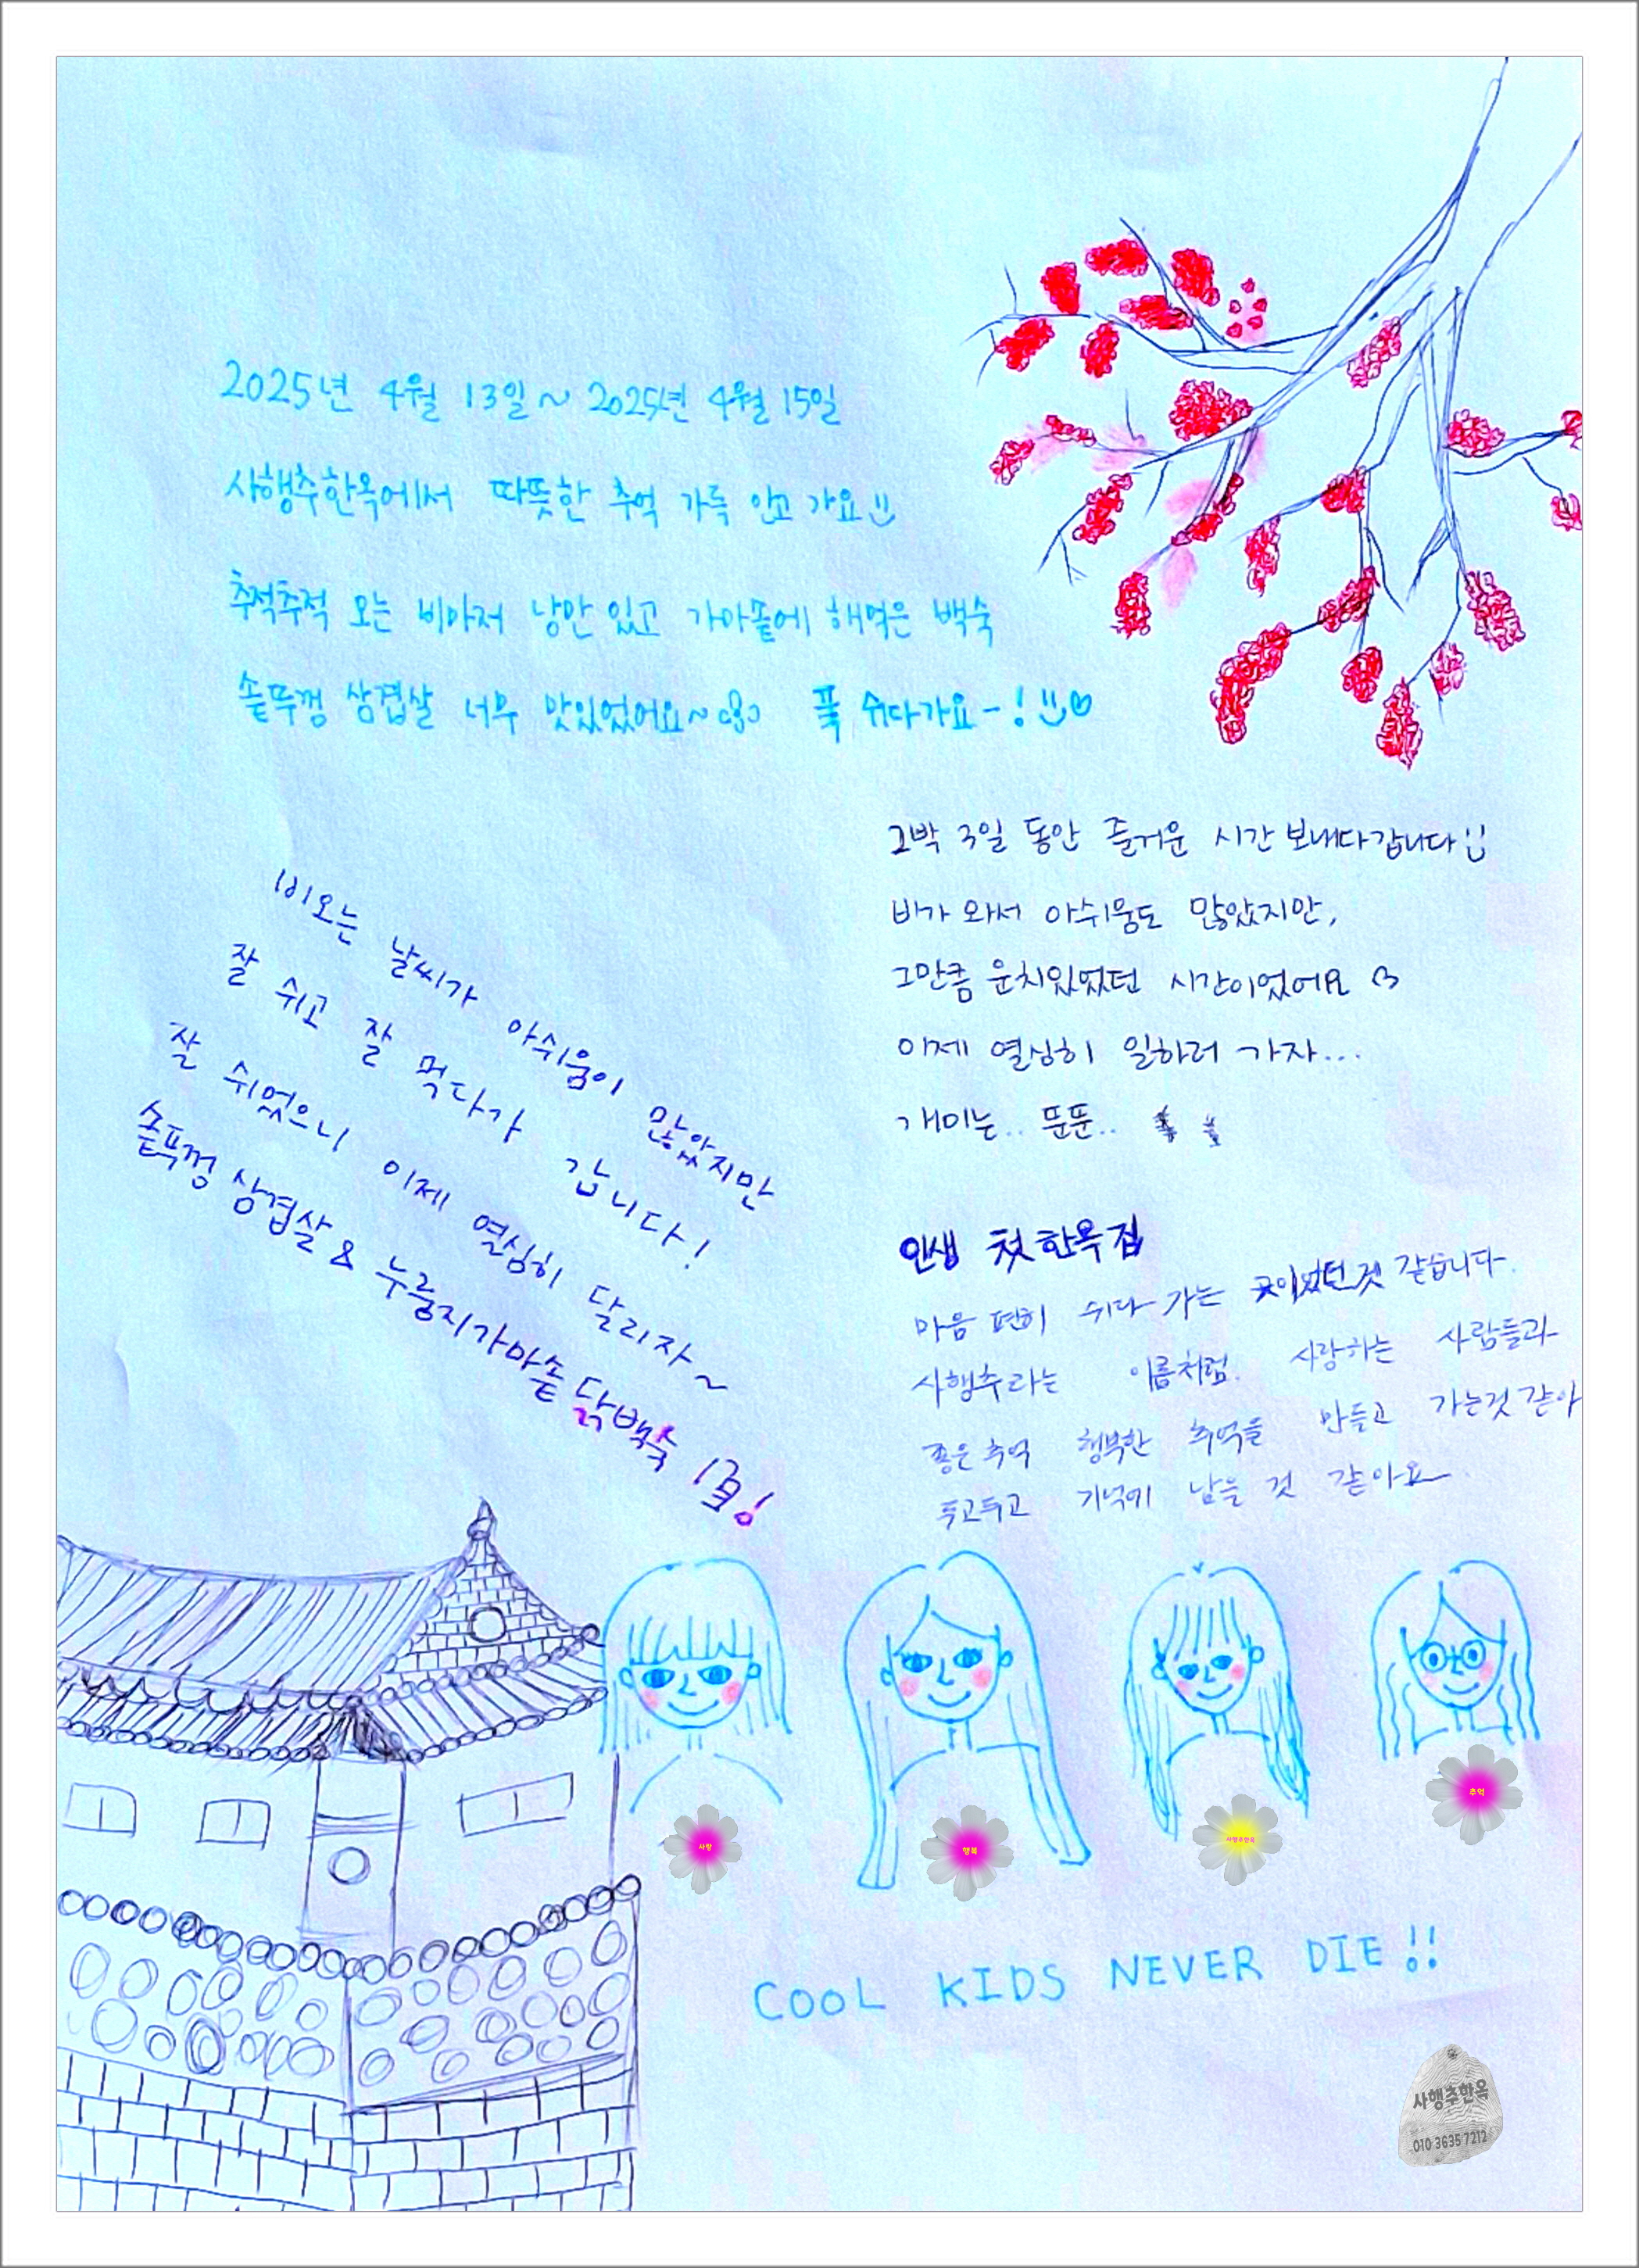 2025년 4월 13일 ~ 2025년 4월 15일
사행추한옥에서 따뜻한 추억 가득 안고 가요
추적추적 오는 비마저 낭만 있고 가마솥에 해먹은 백숙
솥뚜껑 삼겹살 너무 맛있었어요~ 푹 쉬다가요-! ♡
2박 3일 동안 즐거운 시간 보내다갑니다
비가 와서 아쉬움도 많았지만,
그만큼 운치있었던 시간이었어요
이제 열심히 일하러 가자...
개미는.. 뚠뚠..
비오는 날씨가 아쉬움이 많았지만
잘 쉬고 잘 먹다가 갑니다!
잘 쉬었으니 이제 열심히 달리자~
솥뚜껑 삼겹살 & 누룽지가마솥 닭백숙 !
인생 첫 한옥집
마음 편히 쉬다 가는 곳이었던것 같습니다.
사행추라는 이름처럼. 사랑하는 사람들과
좋은 추억 행복한 추억을 만들고 가는것 같아
두고두고 기억에 남을 것 같아요
사랑
행복
사행추한옥
추억
COOL KIDS NEVER DIE!!
사행추한옥
010 3635 7212